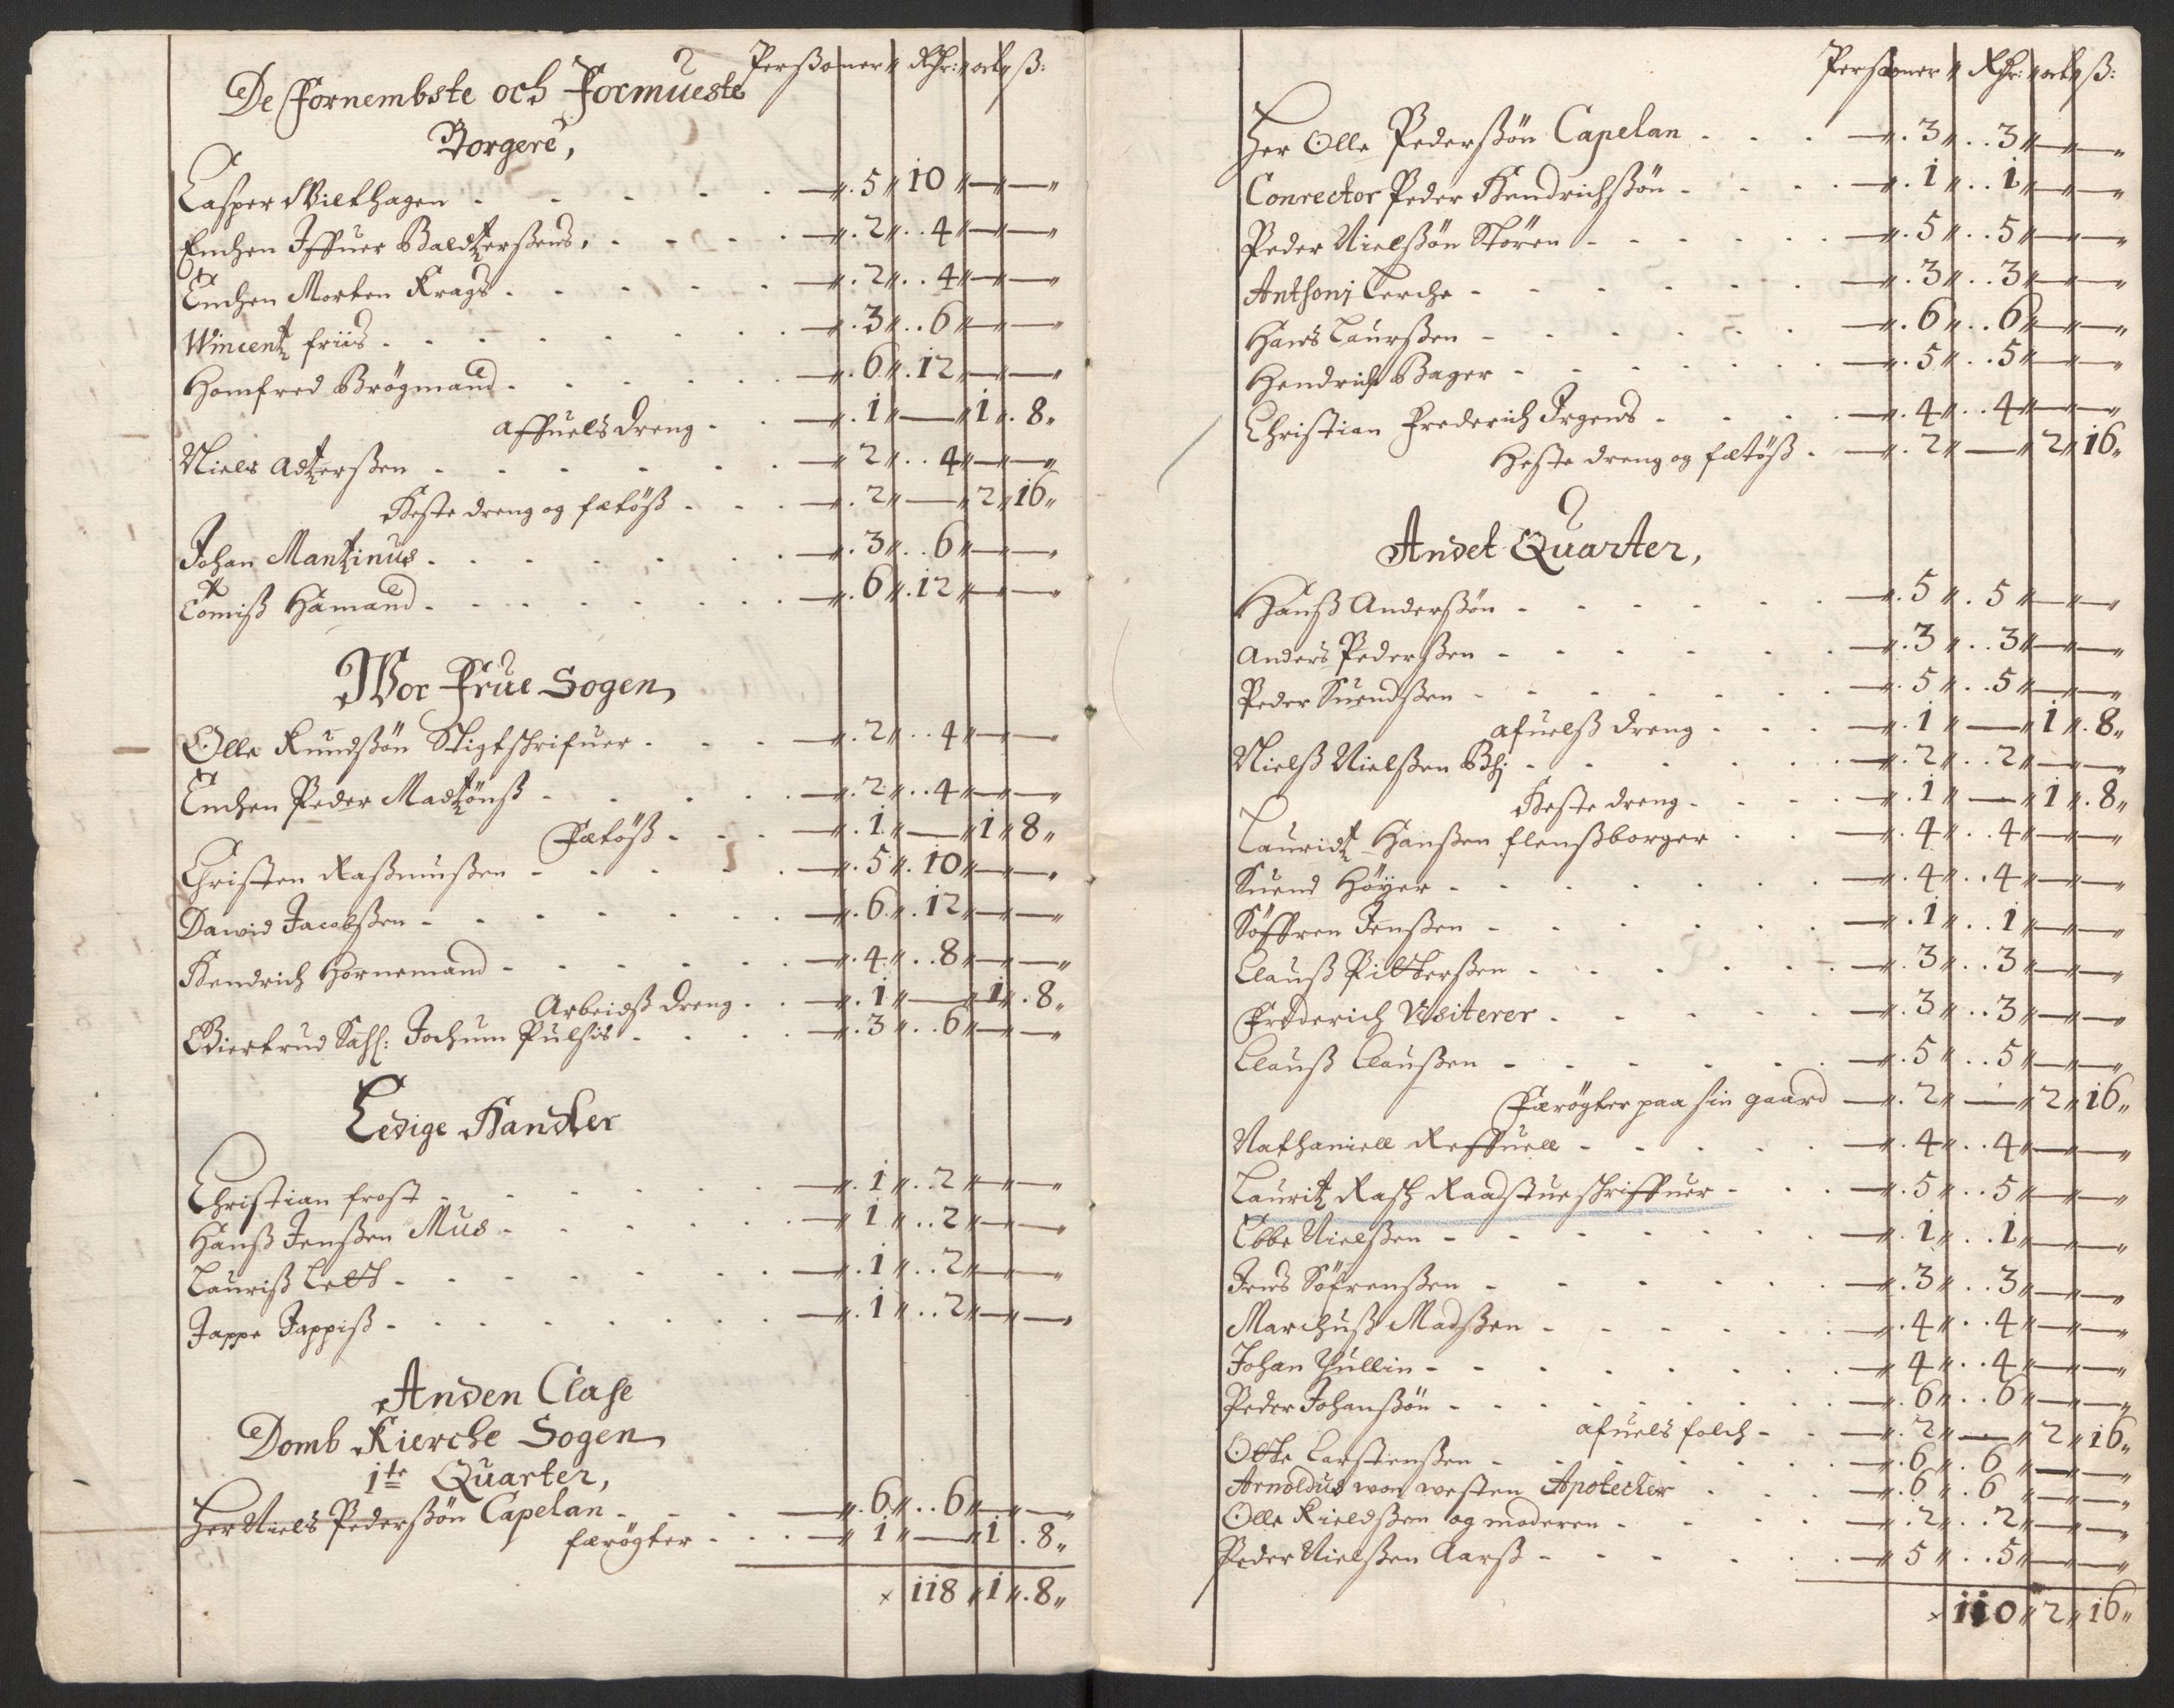 Perßoner Rdr: ort ß:
De ffornembste och Formueste
Borgere,
Casper Wilthagen - - - - 5 10 — —
Enchen Iffuer Baldtzerßens, - - - 2 4 — —
Enchen Morten Krags - - - - 2 4 — —
Wincentz friis - - - - 3 6 — —
Homfred Brøgmand - - - - 6 12 — —
affuels dreng - - 1 — 1 8
Niels Adtzerßen - - - - 2 4 — —
Heste dreng og fætöß - - - 2 — 2 16
Johan Mantzinus - - - - 3 6 — —
Tomiß Hamand - - - - 6 12 — —
Wor Frue Sogen
Olle Knudßön Stigtschrifuer - - - 2 4 — —
Enchen Peder Madtzönß - - - - 2 4 — —
Fætöß - - - 1 — 1 8
Christen Raßmußen - - - - 5 10 — —
Dawid Jacobßen - - - - 6 12 — —
Hendrich Hornemand - - - - 4 8 — —
Arbeidß dreng - - 1 — 1 8
Giertrud Sahl: Jochum Pulsis - - - 3 6 — —
Ledige Handler
Christian frost - - - - 1 2 — —
Hanß Jenßen Mus - - - - 1 2 — —
Lauriß Lett - - - - 1 2 — —
Jappe Jappiß - - - - 1 2 — —
Anden Clase
Domb Kierche Sogen
1te Quarter,
Her Niels Pederßön Capelan - - - 6 6 — —
færögter - - - 1 — 1 8
118 1 8
Personer Rdr: ort ß:
Her Olle Pederßön Capelan - - - 3 3 — —
Conrector Peder Hendrichßön - - - 1 1 — —
Peder Nielßön Stören - - - - 5 5 — —
Anthoni Lerche - - - - 3 3 — —
Hans Laurßen - - - - 6 6 — —
Hendrich Bager - - - - 5 5 — —
Christian Frederich Irgens - - - 4 4 — —
Heste dreng og fætöß - 2 — 2 16
Andet Quarter,
Hanß Anderßön - - - - 5 5 — —
Anders Pederßen - - - - 3 3 — —
Peder Suendßen - - - - 5 5 — —
afuelß dreng - - - 1 — 1 8
Nielß Nielßen Bhj - - - - 2 2 — —
Heste dreng - - - 1 — 1 8
Lauridtz Hanßen flenßborger - - 4 4 — —
Suend Höyer - - - - 4 4 — —
Söffren Jenßen - - - - 1 1 — —
Clauß Pitterßen - - - - 3 3 — —
Friderich Visiterer - - - - 3 3 — —
Clauß Claußen - - - - 5 5 — —
Færögter paa sin gaard 2 — 2 16
Nathaniell Reffuell - - - - 4 4 — —
Lauritz Rasch Raadstueschriffuer - - 5 5 — —
Ebbe Nielßen - - - - 1 1 — —
Jens Söfrenßen - - - - 3 3 — —
Marchuß Madßen - - - - 4 4 — —
Johan Hullin - - - - 4 4 — —
Peder Johanßön - - - - 6 6 — —
afuels folch - - 2 — 2 16
Otte Carstenßen - - - - 6 6 — —
Arnoldus won westen Apotecker - - 6 6 — —
Olle Kieldßen og moderen - - - 2 2 — —
Peder Nielßen Aarß - - - - 5 5 — —
110 2 16